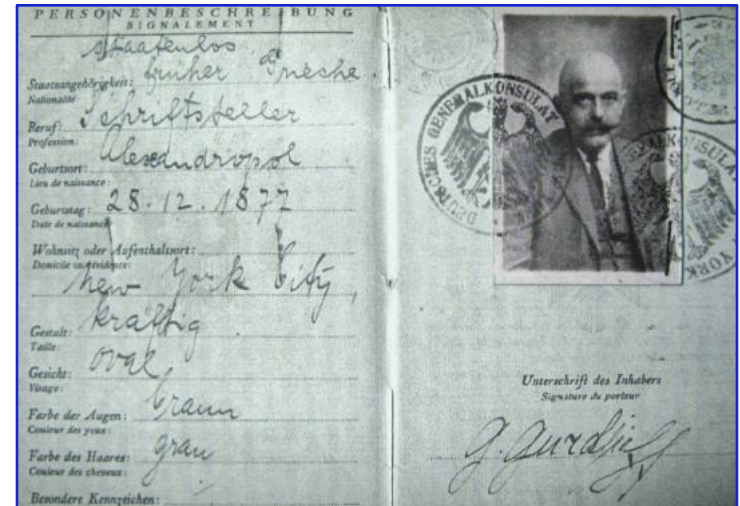 PERSONENBESCHREIBUNG
SIGNALEMENT
staatenlos
Staatsangehörigkeit: früher Grieche.
Nationalité
Beruf: Schriftsteller
Profession:
Geburtsort: Alexandropol
Lieu de naissance:
Geburtstag: 28.12.1877
Date de naissance:
Wohnsitz oder Aufenthaltsort:
Domicile ou résidence:
New York City,
Gestalt: kräftig
Taille:
Gesicht: oval
Visage:
Farbe der Augen: braun
Couleur des yeux:
Farbe des Haares: grau
Couleur des cheveux:
Besondere Kennzeichen:
DEUTSCHES GENERALKONSULAT
ALKONSULAT
YORK
Unterschrift des Inhabers
Signature du porteur
G. Gurdjieff